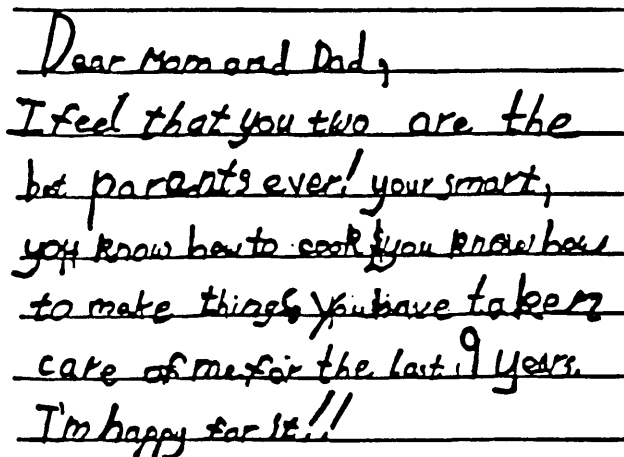 Dear Mom and Dad,
I feel that you two are the
best parents ever! your smart,
you know how to cook, you know how
to make things, you have taken
care of me for the last 9 years.
I'm happy for it!!